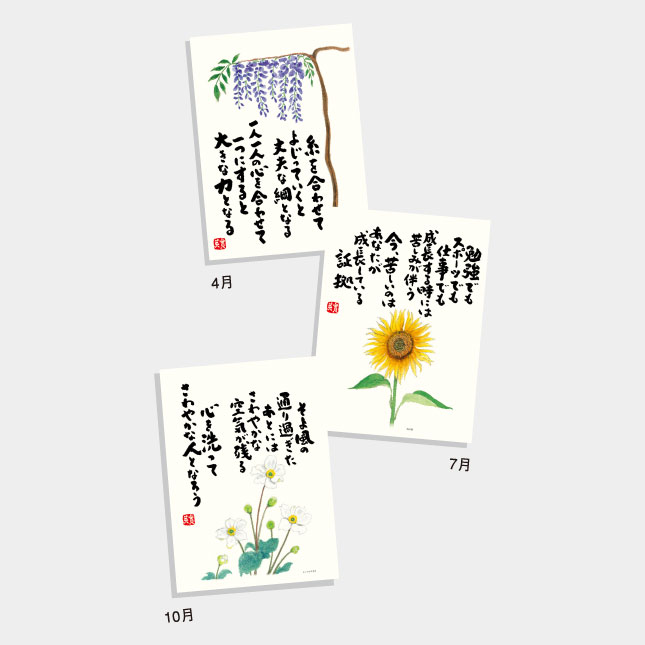 糸を合わせて
よじっていくと
丈夫な綱となる
一人一人の心を合わせて
一つにすると
大きな力となる
4月
勉強でも
スポーツでも
仕事でも
成長する時には
苦しみが伴う
今、苦しいのは
あなたが
成長している
証拠
7月
そよ風の
通り過ぎた
あとには
さわやかな
空気が残る
心を洗って
さわやかな人となろう
10月